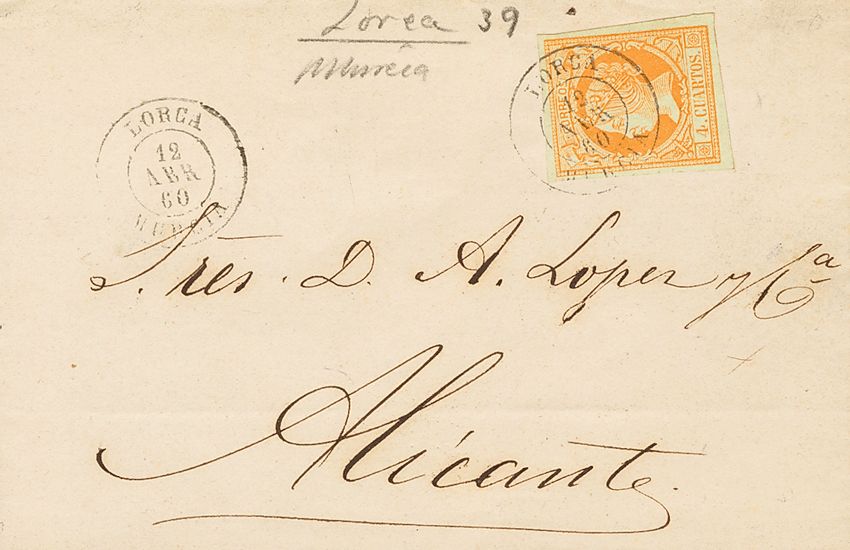 Lorca 39
Murcia
LORCA
12
ABR
60
MURCIA
LORCA
12
ABR
60
MURCIA
4. CUARTOS.
S. res. D. A. Lopez y Cª
Alicante.